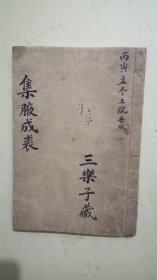 丙寅孟冬上浣
集腋成裘
三樂子藏